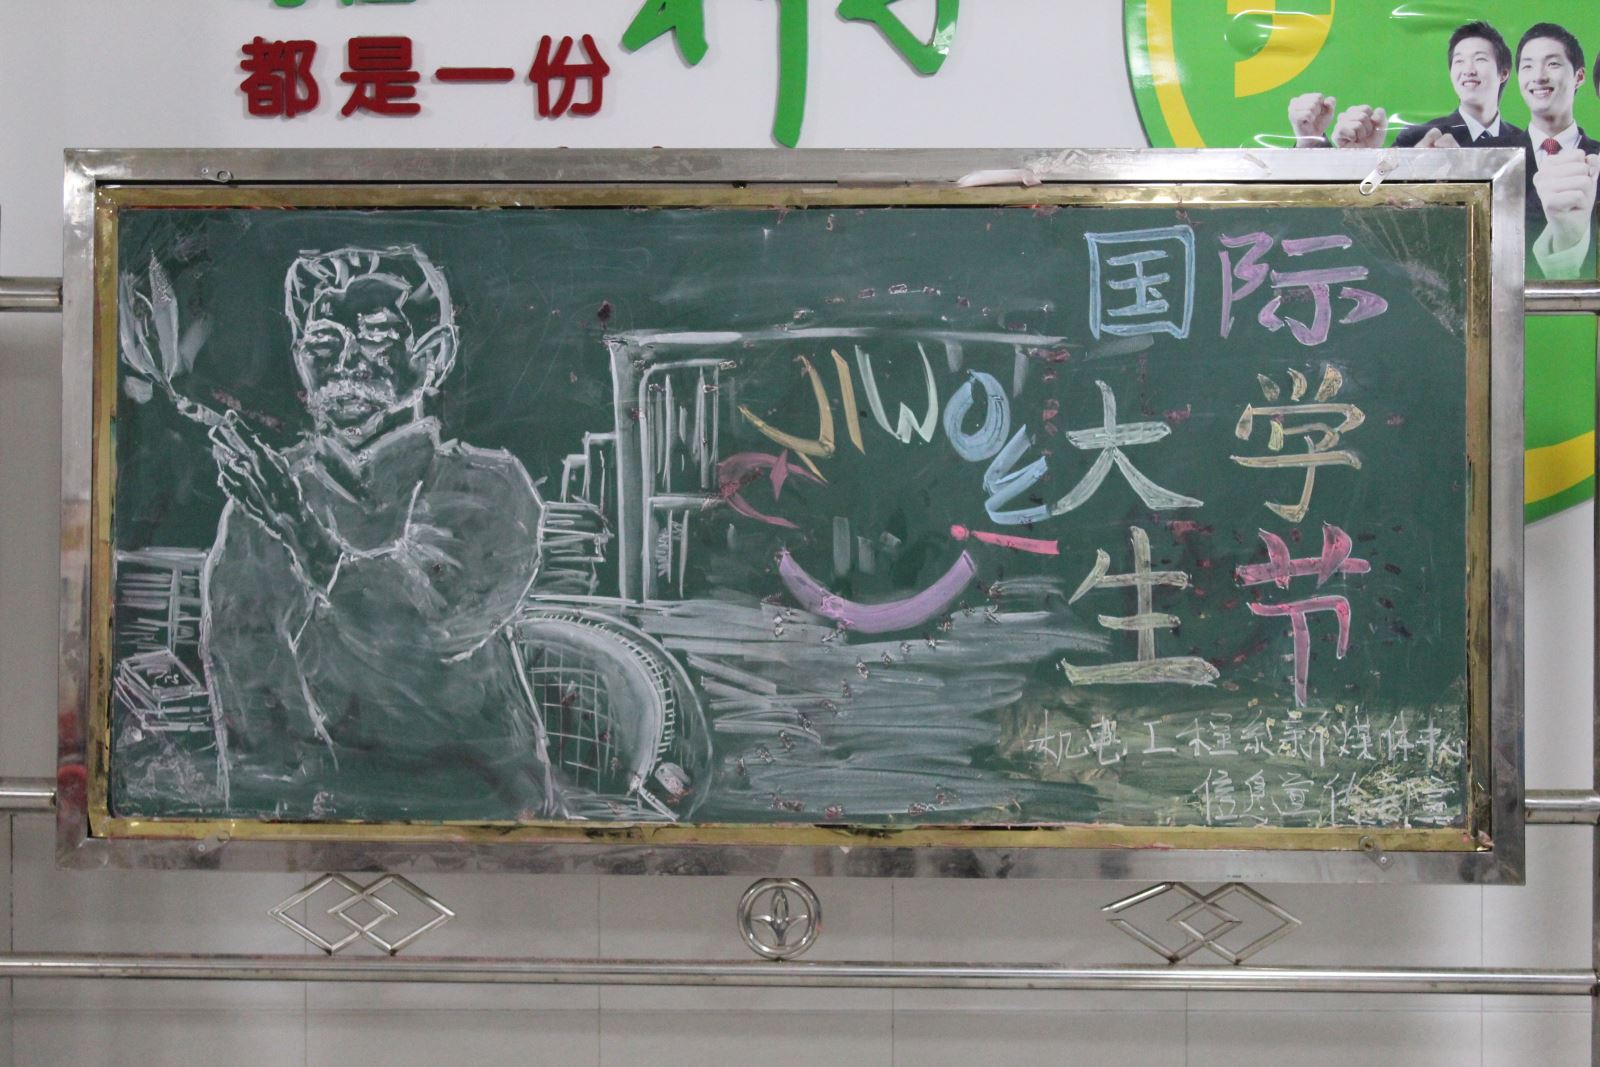 都是一份
国际
大学
生节
JIWOU
机电工程系新媒体中心
信息道传